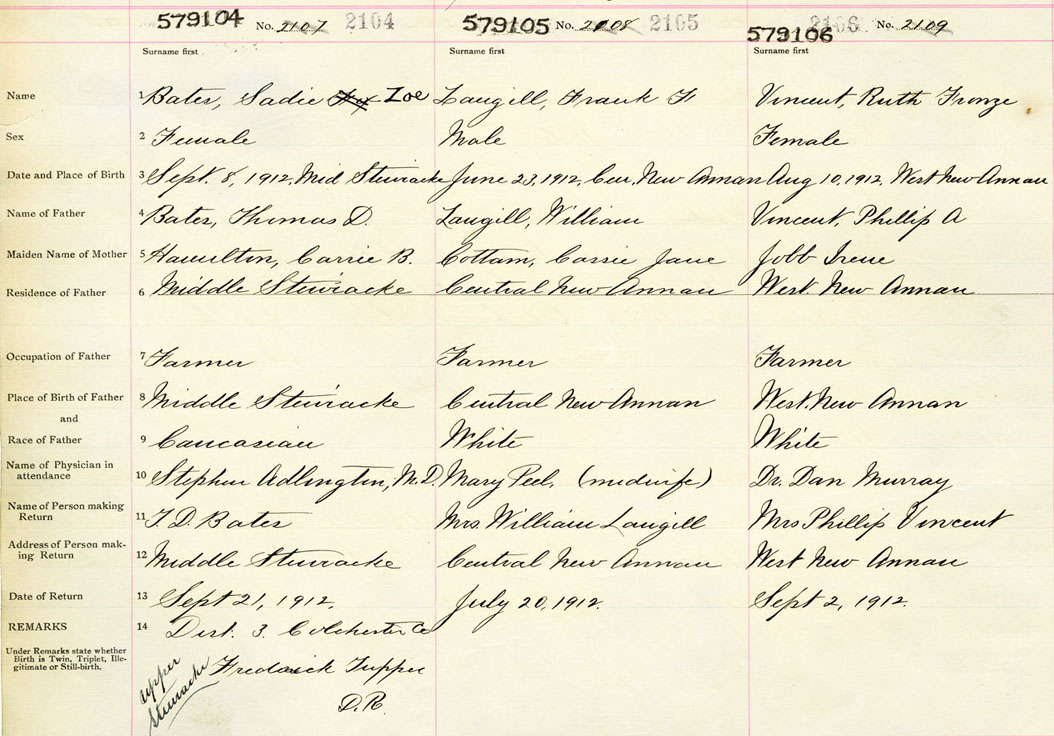 579104 No. 2107 2104 579105 No. 2008 2105 579106 2106 No. 2109
Surname first Surname first Surname first
Name 1 Bates, Sadie Zoe Langill, Frank F Vincent, Ruth
Sex 2 Female Male Female
Date and Place of Birth 3 Sept. 8, 1912, Mid Stewiacke June 23, 1912, Cen, New Annan Aug 10, 1912, West New Annan
Name of Father 4 Bates, Thomas D. Langill, William Vincent, Phillip A
Maiden Name of Mother 5 Hamilton, Carrie B. Cottam, Cassie Jane Jobb Irene
Residence of Father 6 Middle Stewiacke Central New Annan West. New Annan
Occupation of Father 7 Farmer Farmer Farmer
Place of Birth of Father 8 Middle Stewiacke Central New Annan West. New Annan
and
Race of Father 9 Caucasian White White
Name of Physician in
attendance 10 Stephen Adlington, M.D. Mary Peel, (midwife) Dr. Dan Murray
Name of Person making
Return 11 T. D. Bates Mrs. William Langill Mrs Phillip Vincent
Address of Person mak-
ing Return 12 Middle Stewiacke Central New Annan West New Annan
Date of Return 13 Sept 21, 1912. July 20, 1912. Sept 2, 1912.
REMARKS 14 Dist. 3. Colchester Co
Under Remarks state whether
Birth is Twin, Triplet, Ille-
gitimate or Still-birth.
Frederick Tupper
D.R.
Upper
Stewiacke